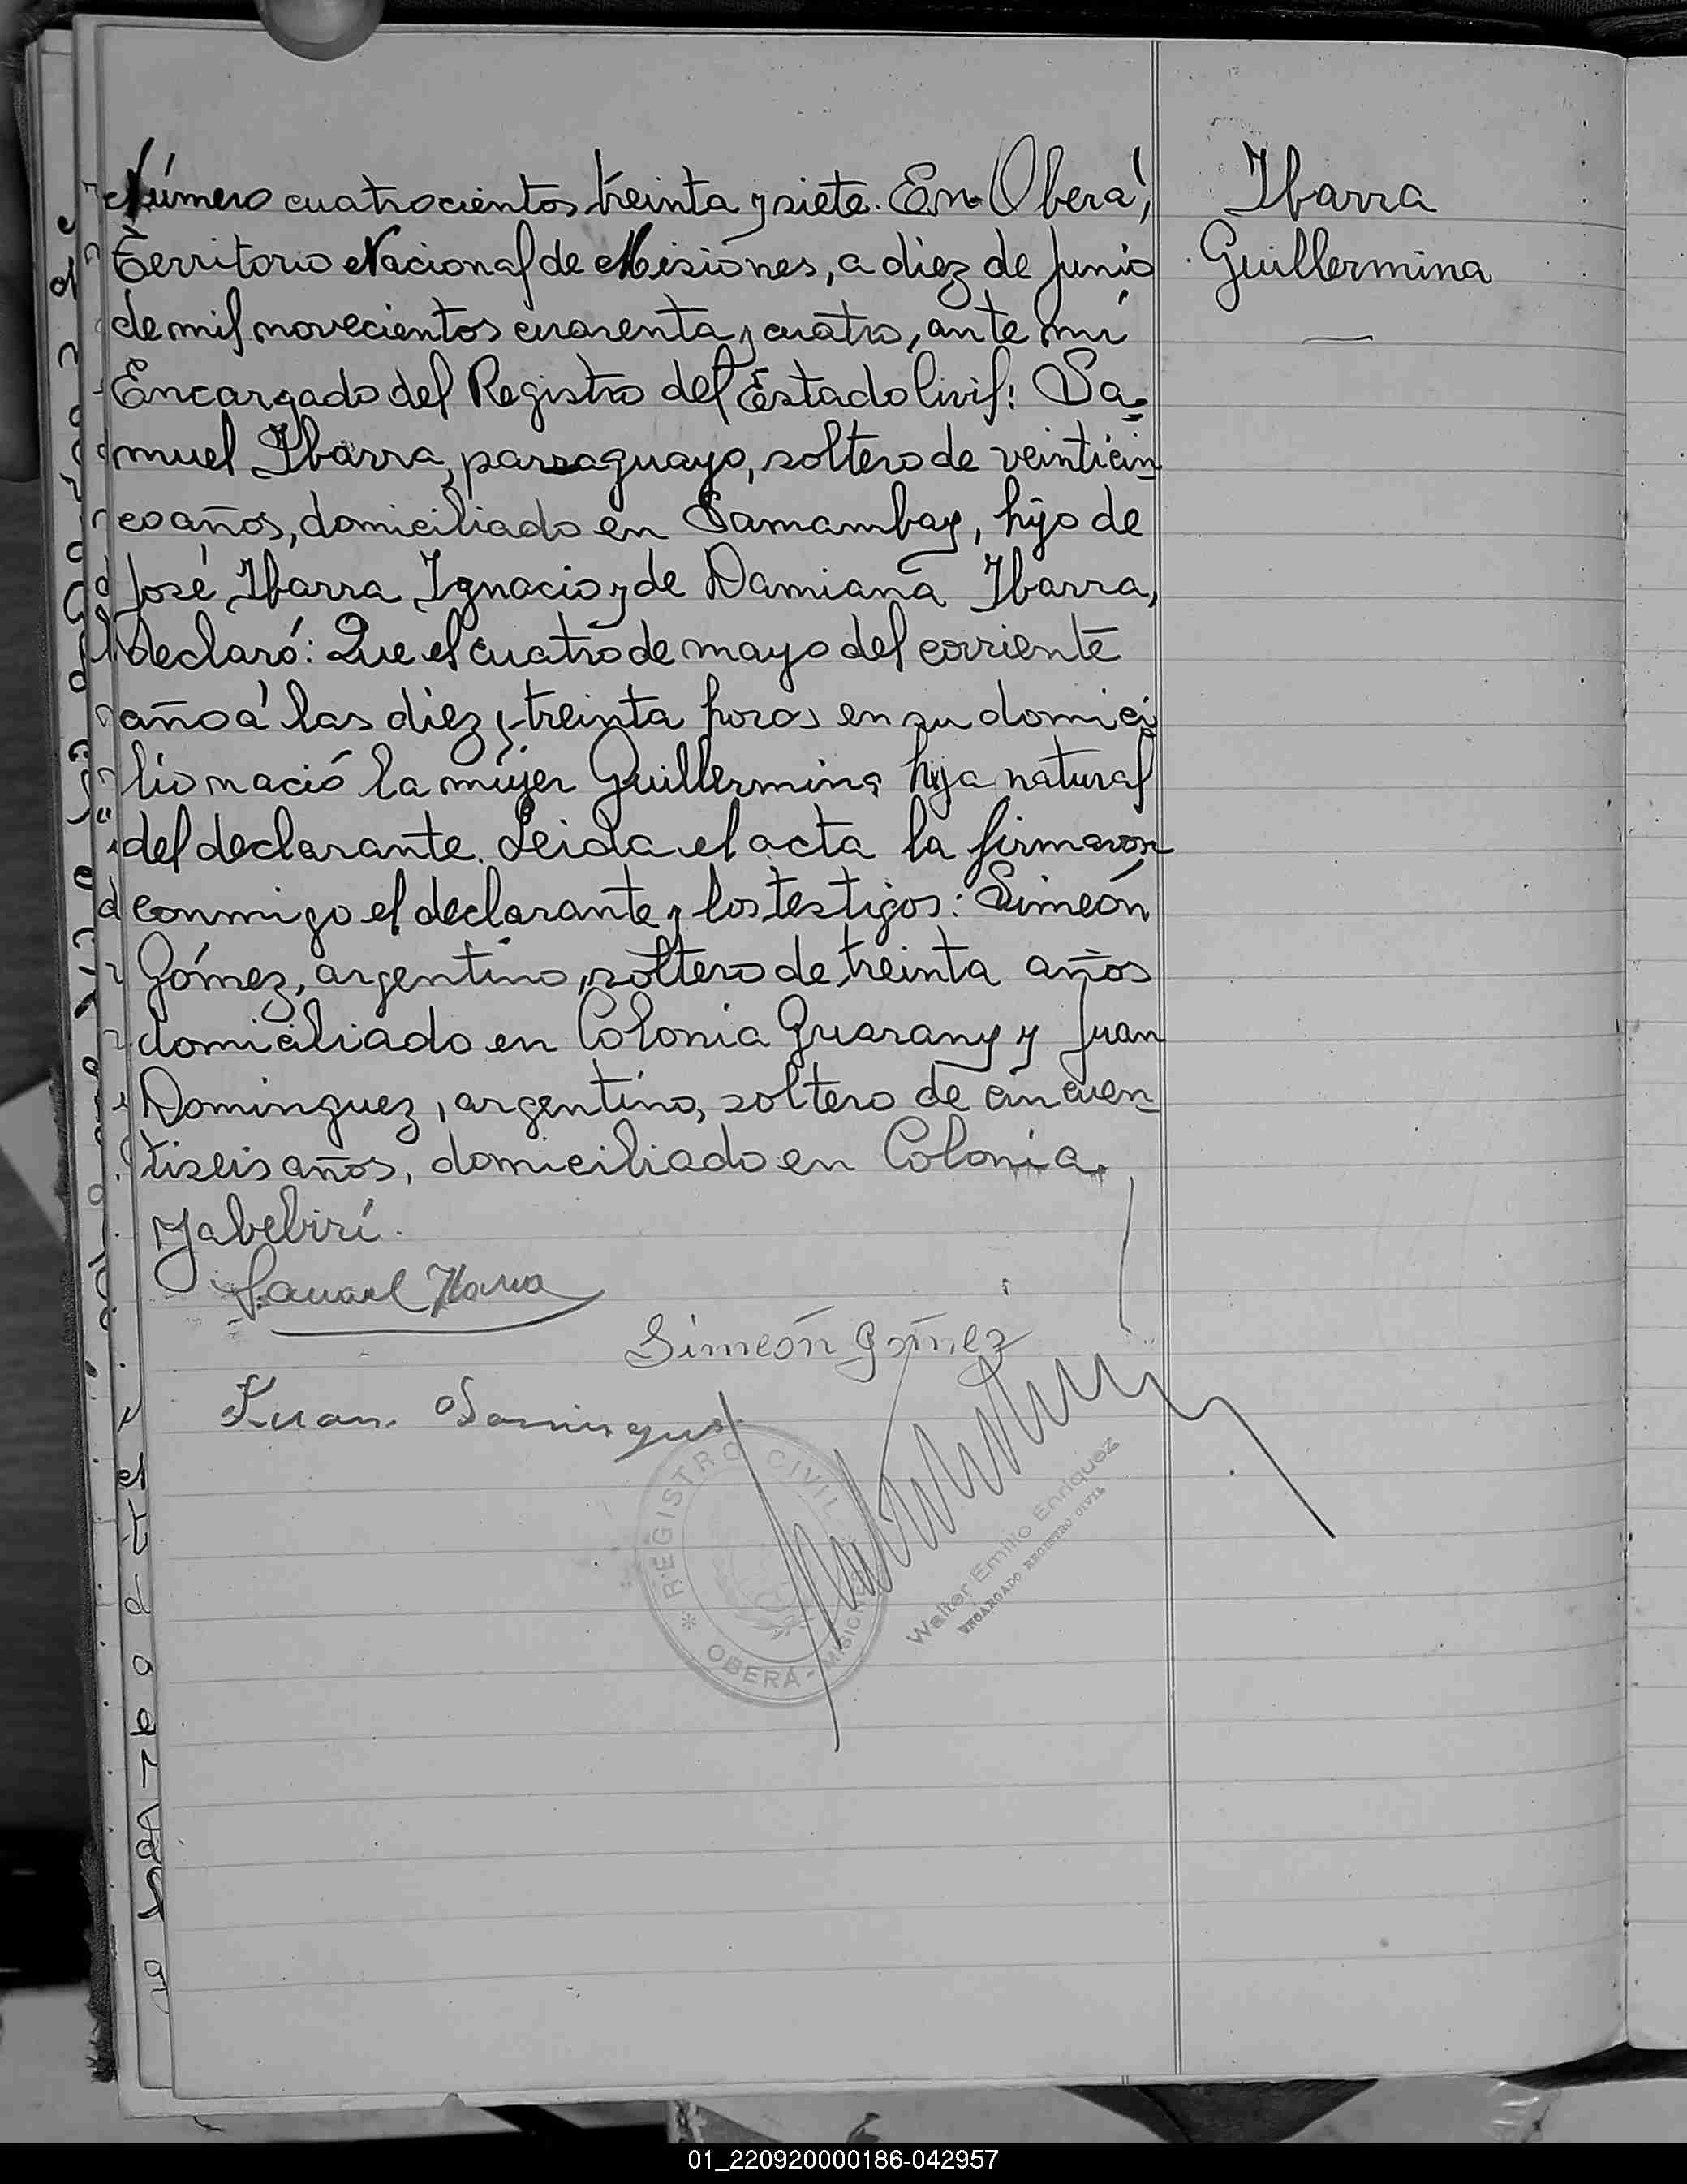 Número cuatrocientos treinta y siete. En Oberá,
Territorio Nacional de Misiones, a diez de Junio
de mil novecientos cuarenta y cuatro, ante mí
Encargado del Registro del Estado Civil: Sa=
muel Ibarra, parraguayo, soltero de veinticin
co años, domiciliado en Samambay, hijo de
José Ibarra Ignacio y de Damiana Ibarra,
declaró: Que el cuatro de mayo del corriente
año á las diez y treinta horas en su domici
lio nació la mujer Guillermina hija natural
del declarante. Leida el acta la firmaron
conmigo el declarante y los testigos: Simeón
Gómez, argentino, soltero de treinta años
domiciliado en Colonia Guarany y Juan
Dominguez, argentino, soltero de cincuen
tiseis años, domiciliado en Colonia
Yabebirí.
Ibarra
Guillermina
Samuel Ibarra
Simeón Gómez
Juan Domingues
REGISTRO CIVIL
OBERÁ - MISIONES
Walter Emilio Enriquez
ENCARGADO REGISTRO CIVIL
01_220920000186-042957